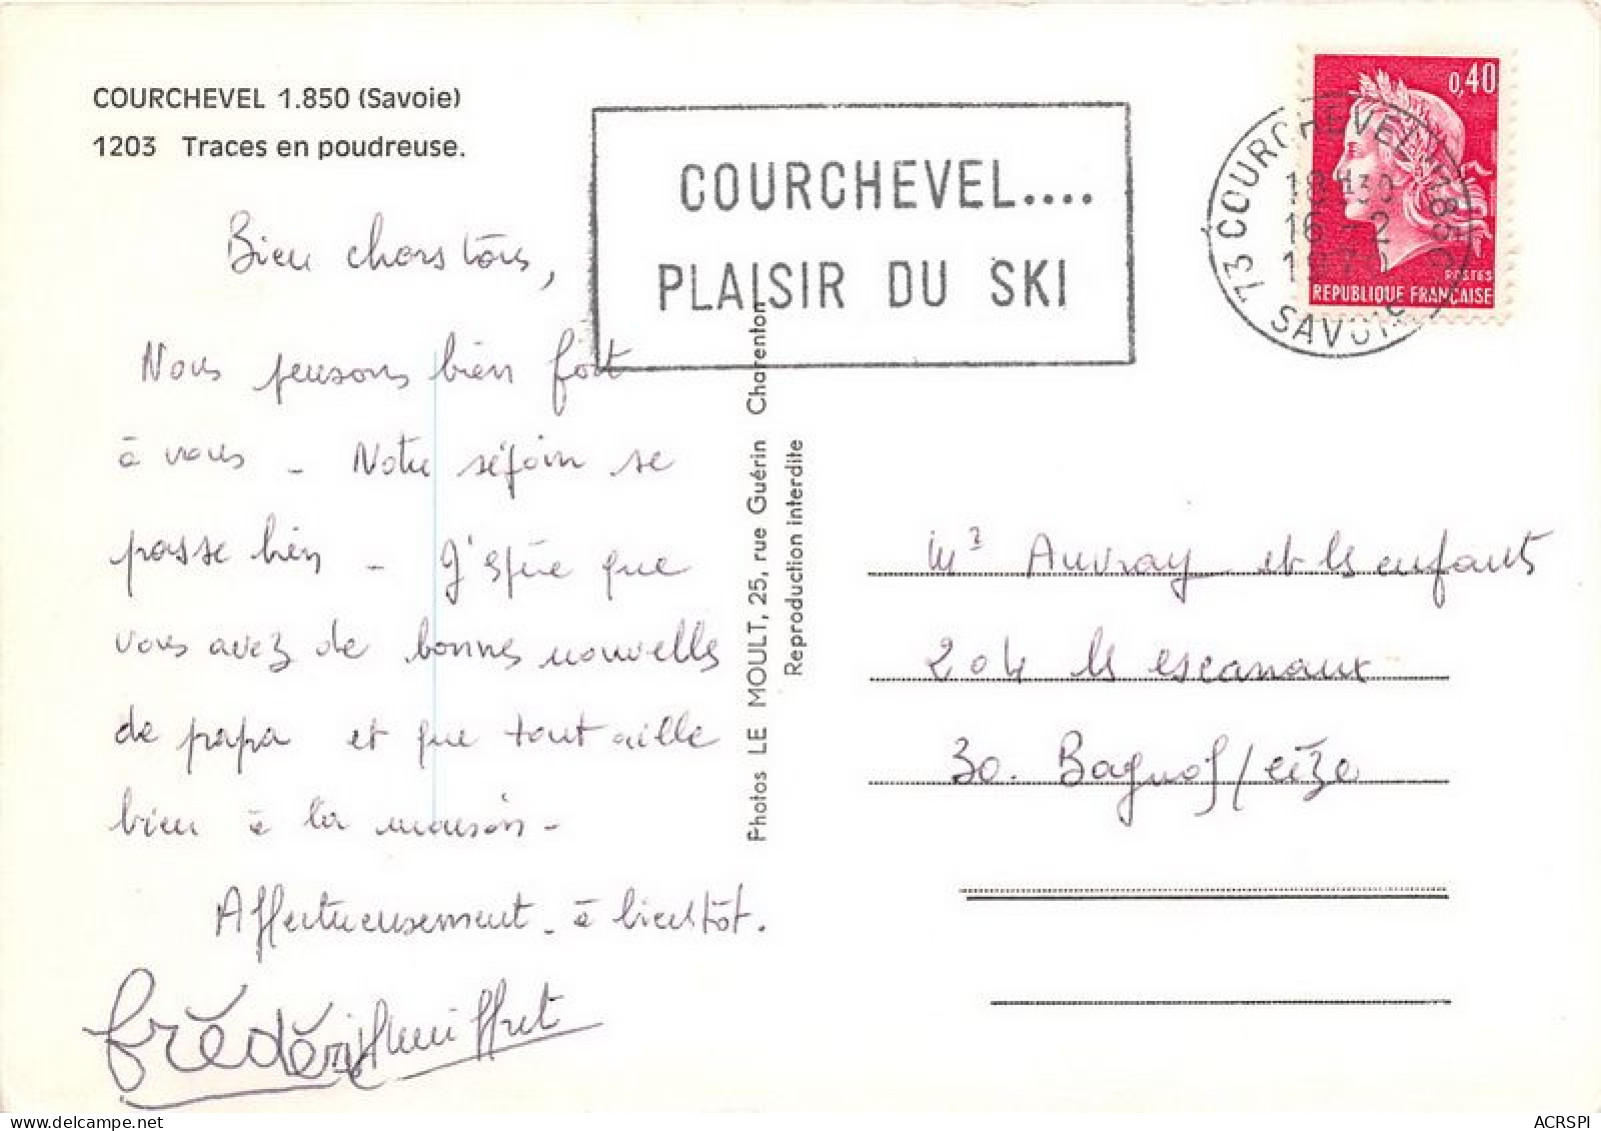 COURCHEVEL 1.850 (Savoie)
1203 Traces en poudreuse.
Bien chers tous,
Nous pensons bien fort
à vous - Notre séjour se
passe bien - J'espère que
vous avez de bonnes nouvelles
de papa et que tout aille
bien à la maison -
Affectueusement - à bientôt.
Frédéric
COURCHEVEL....
PLAISIR DU SKI
73 COURCHEVEL 1850
18H30
16-2
1970
SAVOIE
0,40
POSTES
REPUBLIQUE FRANCAISE
Photos LE MOULT, 25, rue Guérin Charenton
Reproduction interdite
Auvray et les enfants
204 les escanaux
30. Bagnols/cèze
ACRSPI